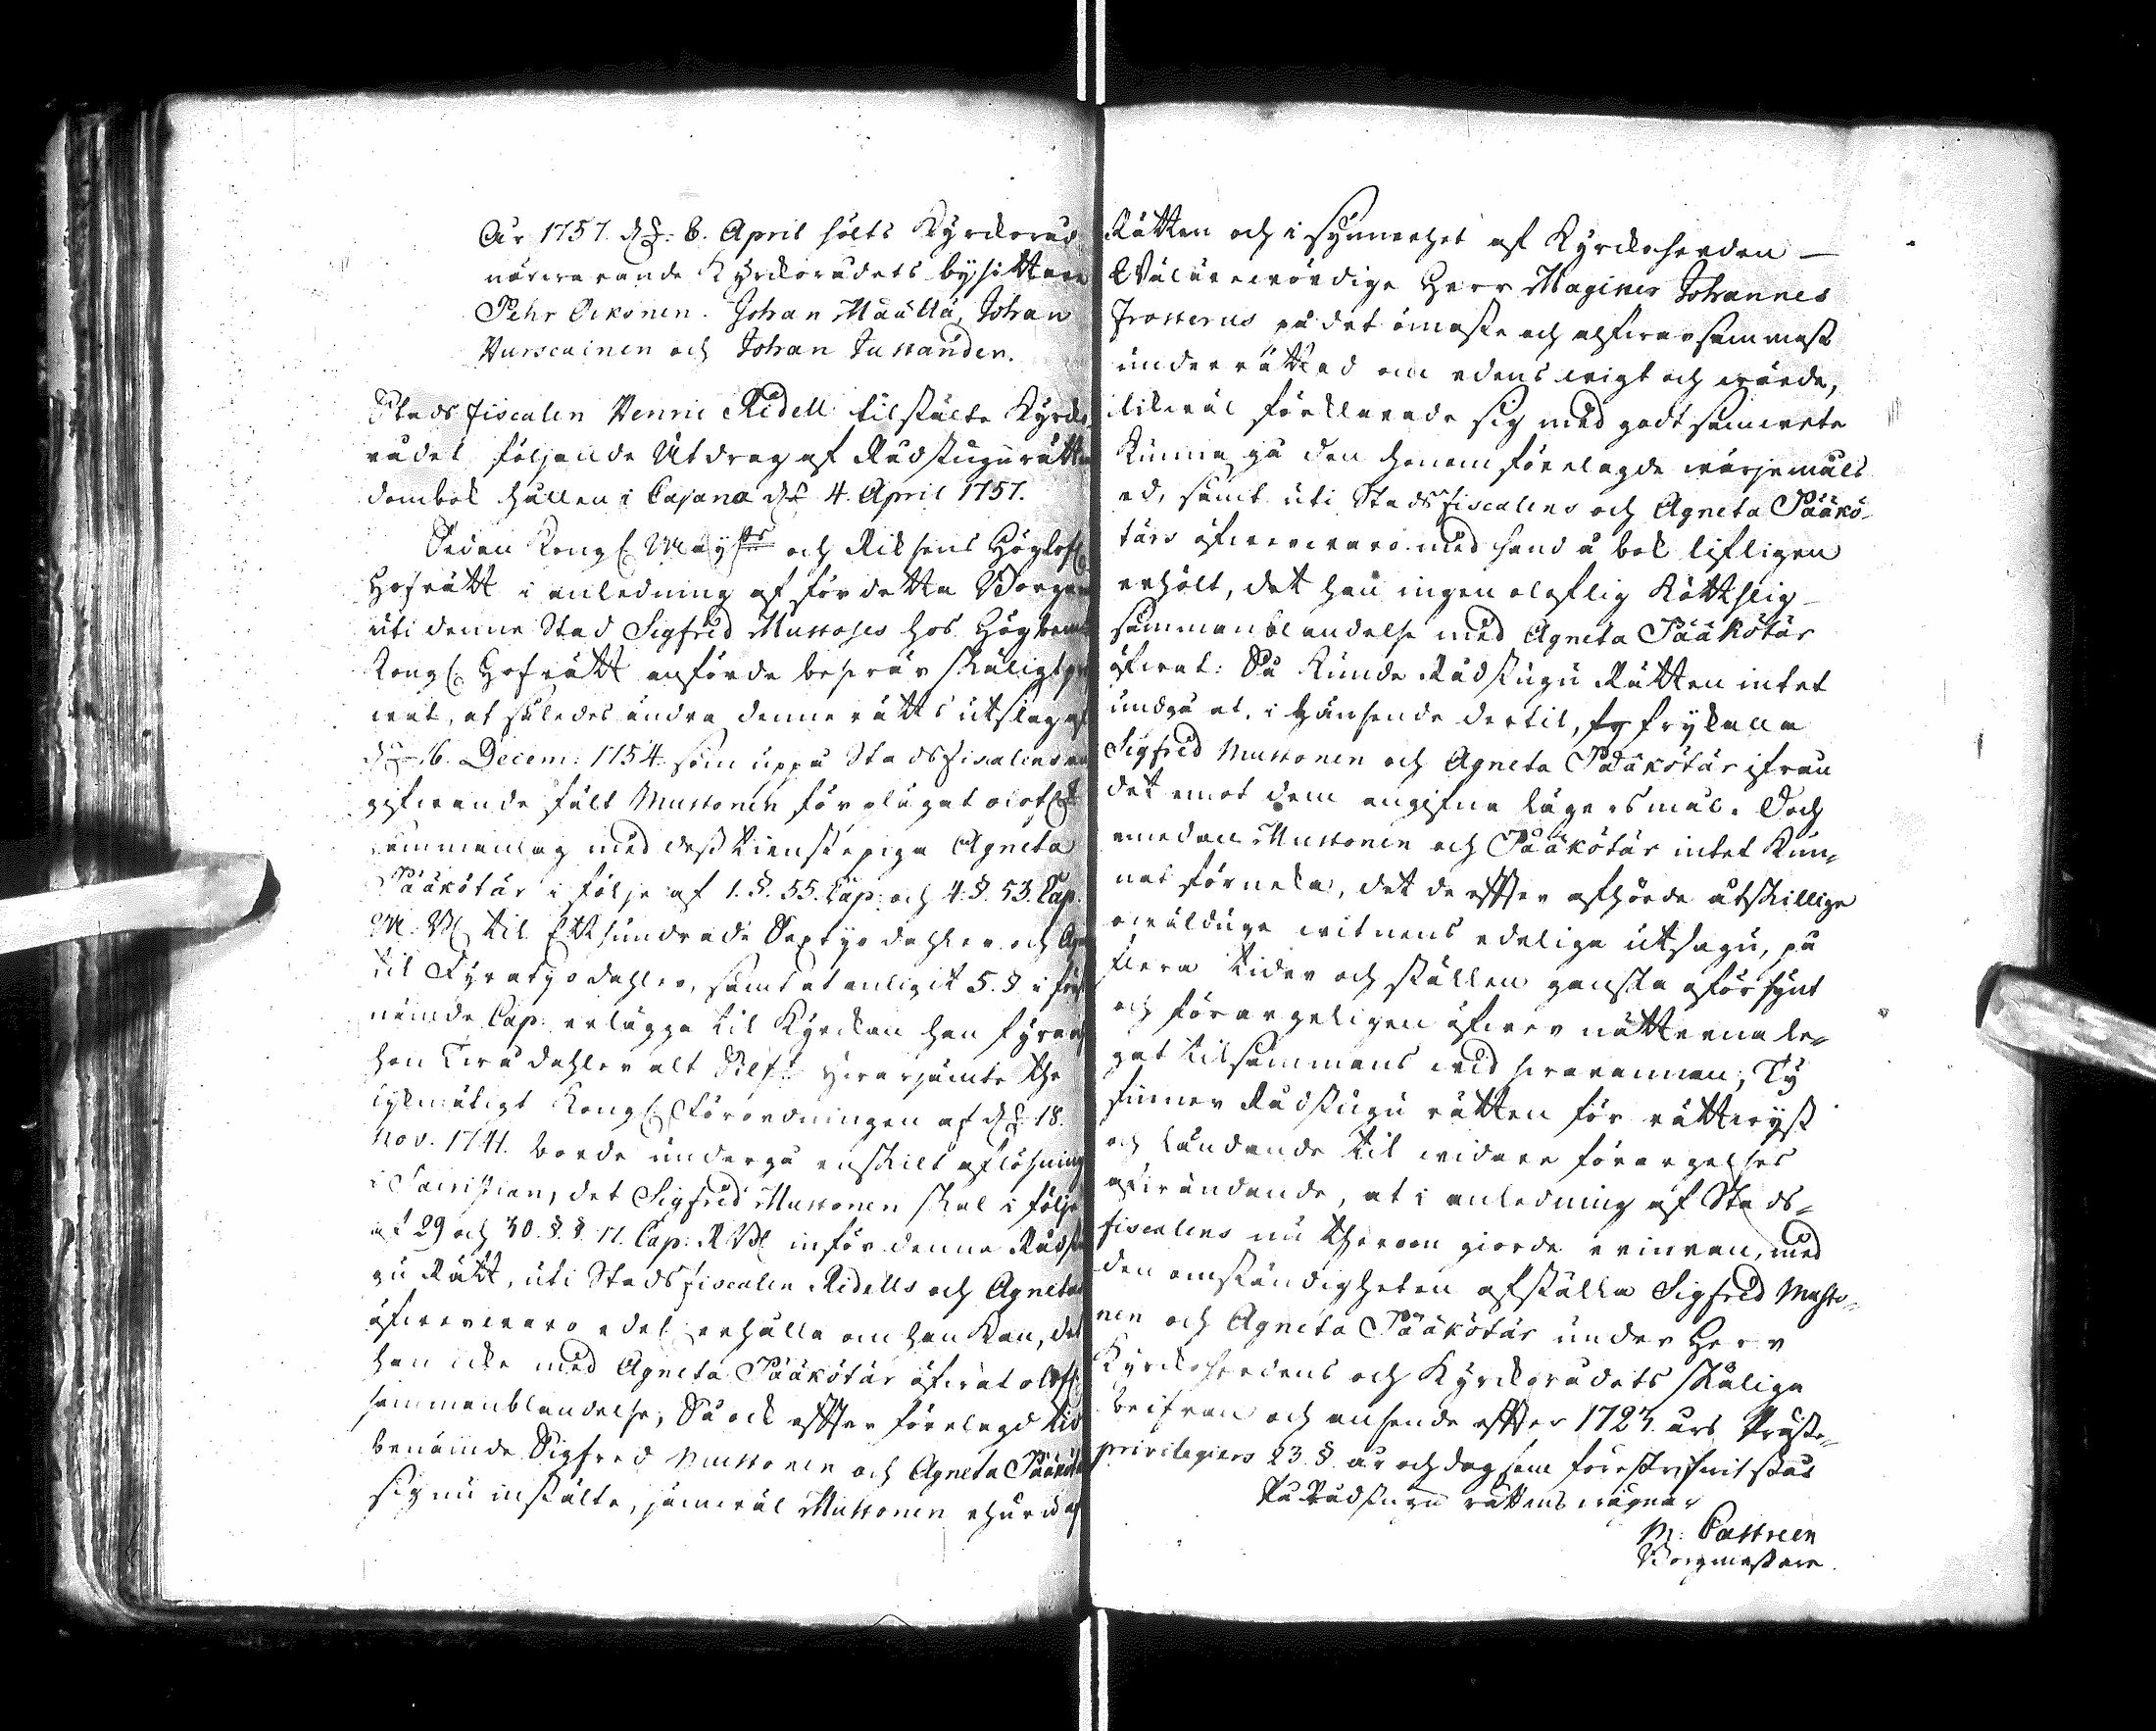 År 1757. d. 8. April hölts Kyrckoråd
närwarande Kyrckorådets bysittare
Pehr Oikonen. Johan Määttä, Johan
Kurscainen och Johan Tuttanden.
Stads fiscalen Henric Ridell tilstälte Kyrcko
rådet följande Utdrag af Rådstugu rättens
dombok hållen i Cajana d. 4. April 1757.
Sedan Kongl. May:ts och Riksens Höglofl.
Hofrätt i anledning af fördetta Borgaren
uti denne Stad Sigfrid Mustoses hos Högbem:te
Kongl. Hofrätt anförde beswär skäligt
wat, at således ändra denne rätts utslag af
d. 16. Decem: 1754. som uppå Stads fiscalens an
gifwande fält Mustonen för plägat olofl.
sammanlag med dess tienstepiga Agneta
Pääkötär i följe af 1. §. 55. Cap: och 4. §. 53. Cap.
M. B. til Ett hundrade Sextyo dahler och Agneta
til Fyratyo dahler, samt at enligit 5. § i först
nämde Cap: erlägga til Kyrckan han fyra och
hon Twå dahler alt Silf:mt hwarjämte the
lijkmätigt Kongl. Förordningen af d. 18.
Nov. 1741. borde undergå enskilt aflösning
i Sacristian, det Sigfrid Mustonen skal i följe
af 29 och 30. §. §. 17. Cap: R. B. inför denne Rådstu
gu Rätt, uti Stads fiscalen Ridells och Agnetas
öfwerwaro edel. erhålla om han kan, det
han icke med Agneta Pääkötär öfwat olofl.
sammanblandelse, Så ock effter förelagd tid
benämde Sigfred Mustonen och Agneta Pääkötär
sig nu instälte, jämwäl Mustonen ehuru af
Rätten och i synnerhet af Kyrckoherden
Wälärewördige Herr Magister Johannes
Frosterus på det ömaste och alfwarsammast
underrättad om edens wigt och wärde,
likwäl förklarade sig med godt samwete
kunna gå den honom förelagde wärjemåls
ed, samt uti Stadsfiscalens och Agneta Pääkö-
tärs öfwerwaro med hand å bok lifligen
erhölt, det han ingen olaflig köttslig
sammanblandelse med Agneta Pääkötär
öfwat: Så kunde Rådstugu Rätten intet
undgå at, i hänseende dertil, frykalla
Sigfrid Mustonen och Agneta Pääkötär ifrån
det emot dem angifne lägersmål. Doch
emedan Mustonen och Pääkötär intet kun-
nat förneka, det de effter afhörde åtskillige
owäldige witnens edeliga utsago, på
flera tider och ställen ganska oförsynt
och förargeligen öfwer nätterna le-
gat tilsammans wid hwarannan; Ty
finner Rådstugu rätten för rättwyst
och ländande til widare förargelses
afwändande, at i anledning af Stads-
fiscalens nu therom giorde erinran, med
den omständigheten afställa Sigfrid Musto-
nen och Agneta Pääkötär under Herr
Kyrckoherdens och Kyrckorådets skäliga
beifran och anseende effter 1723. års Präste-
privilegiers 23. §. år och dag som förr skrifwit står
På Rådstugu rättens wägnar
M. Castreen
Borgmästare.